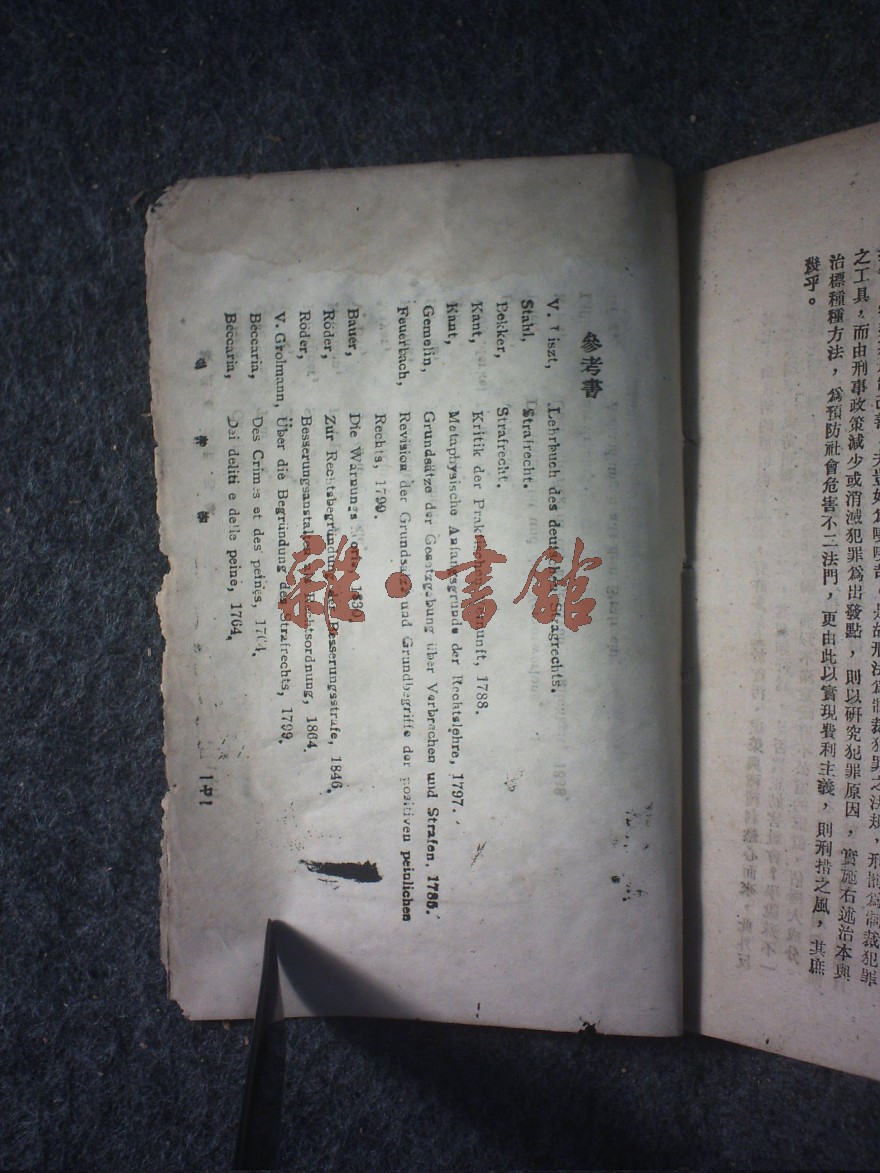 之工具，而由刑事政策減少或消滅犯罪爲出發點，則以硏究犯罪原因，實施右述治本與
治標種種方法，爲預防社會危害不二法門，更由此以實現費利主義，則刑措之風，其庶
幾乎。
參考書
V. Liszt, Lehrbuch des deutschen Stragrechts.
Stahl, Strafrecht.
Bekker, Strafrecht.
Kant, Kritik der Praktischen Vernunft, 1788.
Kant, Metaphysische Anfangsgrunde der Rechtslehre, 1797.
Gemelin, Grundsätze der Gesetzgebung über Verbrechen und Strafen, 1785.
Feuerbach, Revision der Grundsätze und Grundbegriffe der positiven peinlichen
Rechts, 1799.
Bauer, Die Warnungs 1830.
Röder, Zur Rechtsbegründung der Besserungsstrafe, 1846.
Röder, Besserungsanstalten Rechtsordnung, 1864.
V. Grolmann, Über die Begründung des Strafrechts, 1799.
Beccaria, Des Crimes et des peines, 1764.
Beccaria, Dei deliti e delle peine, 1764.
參考書
雜·書館